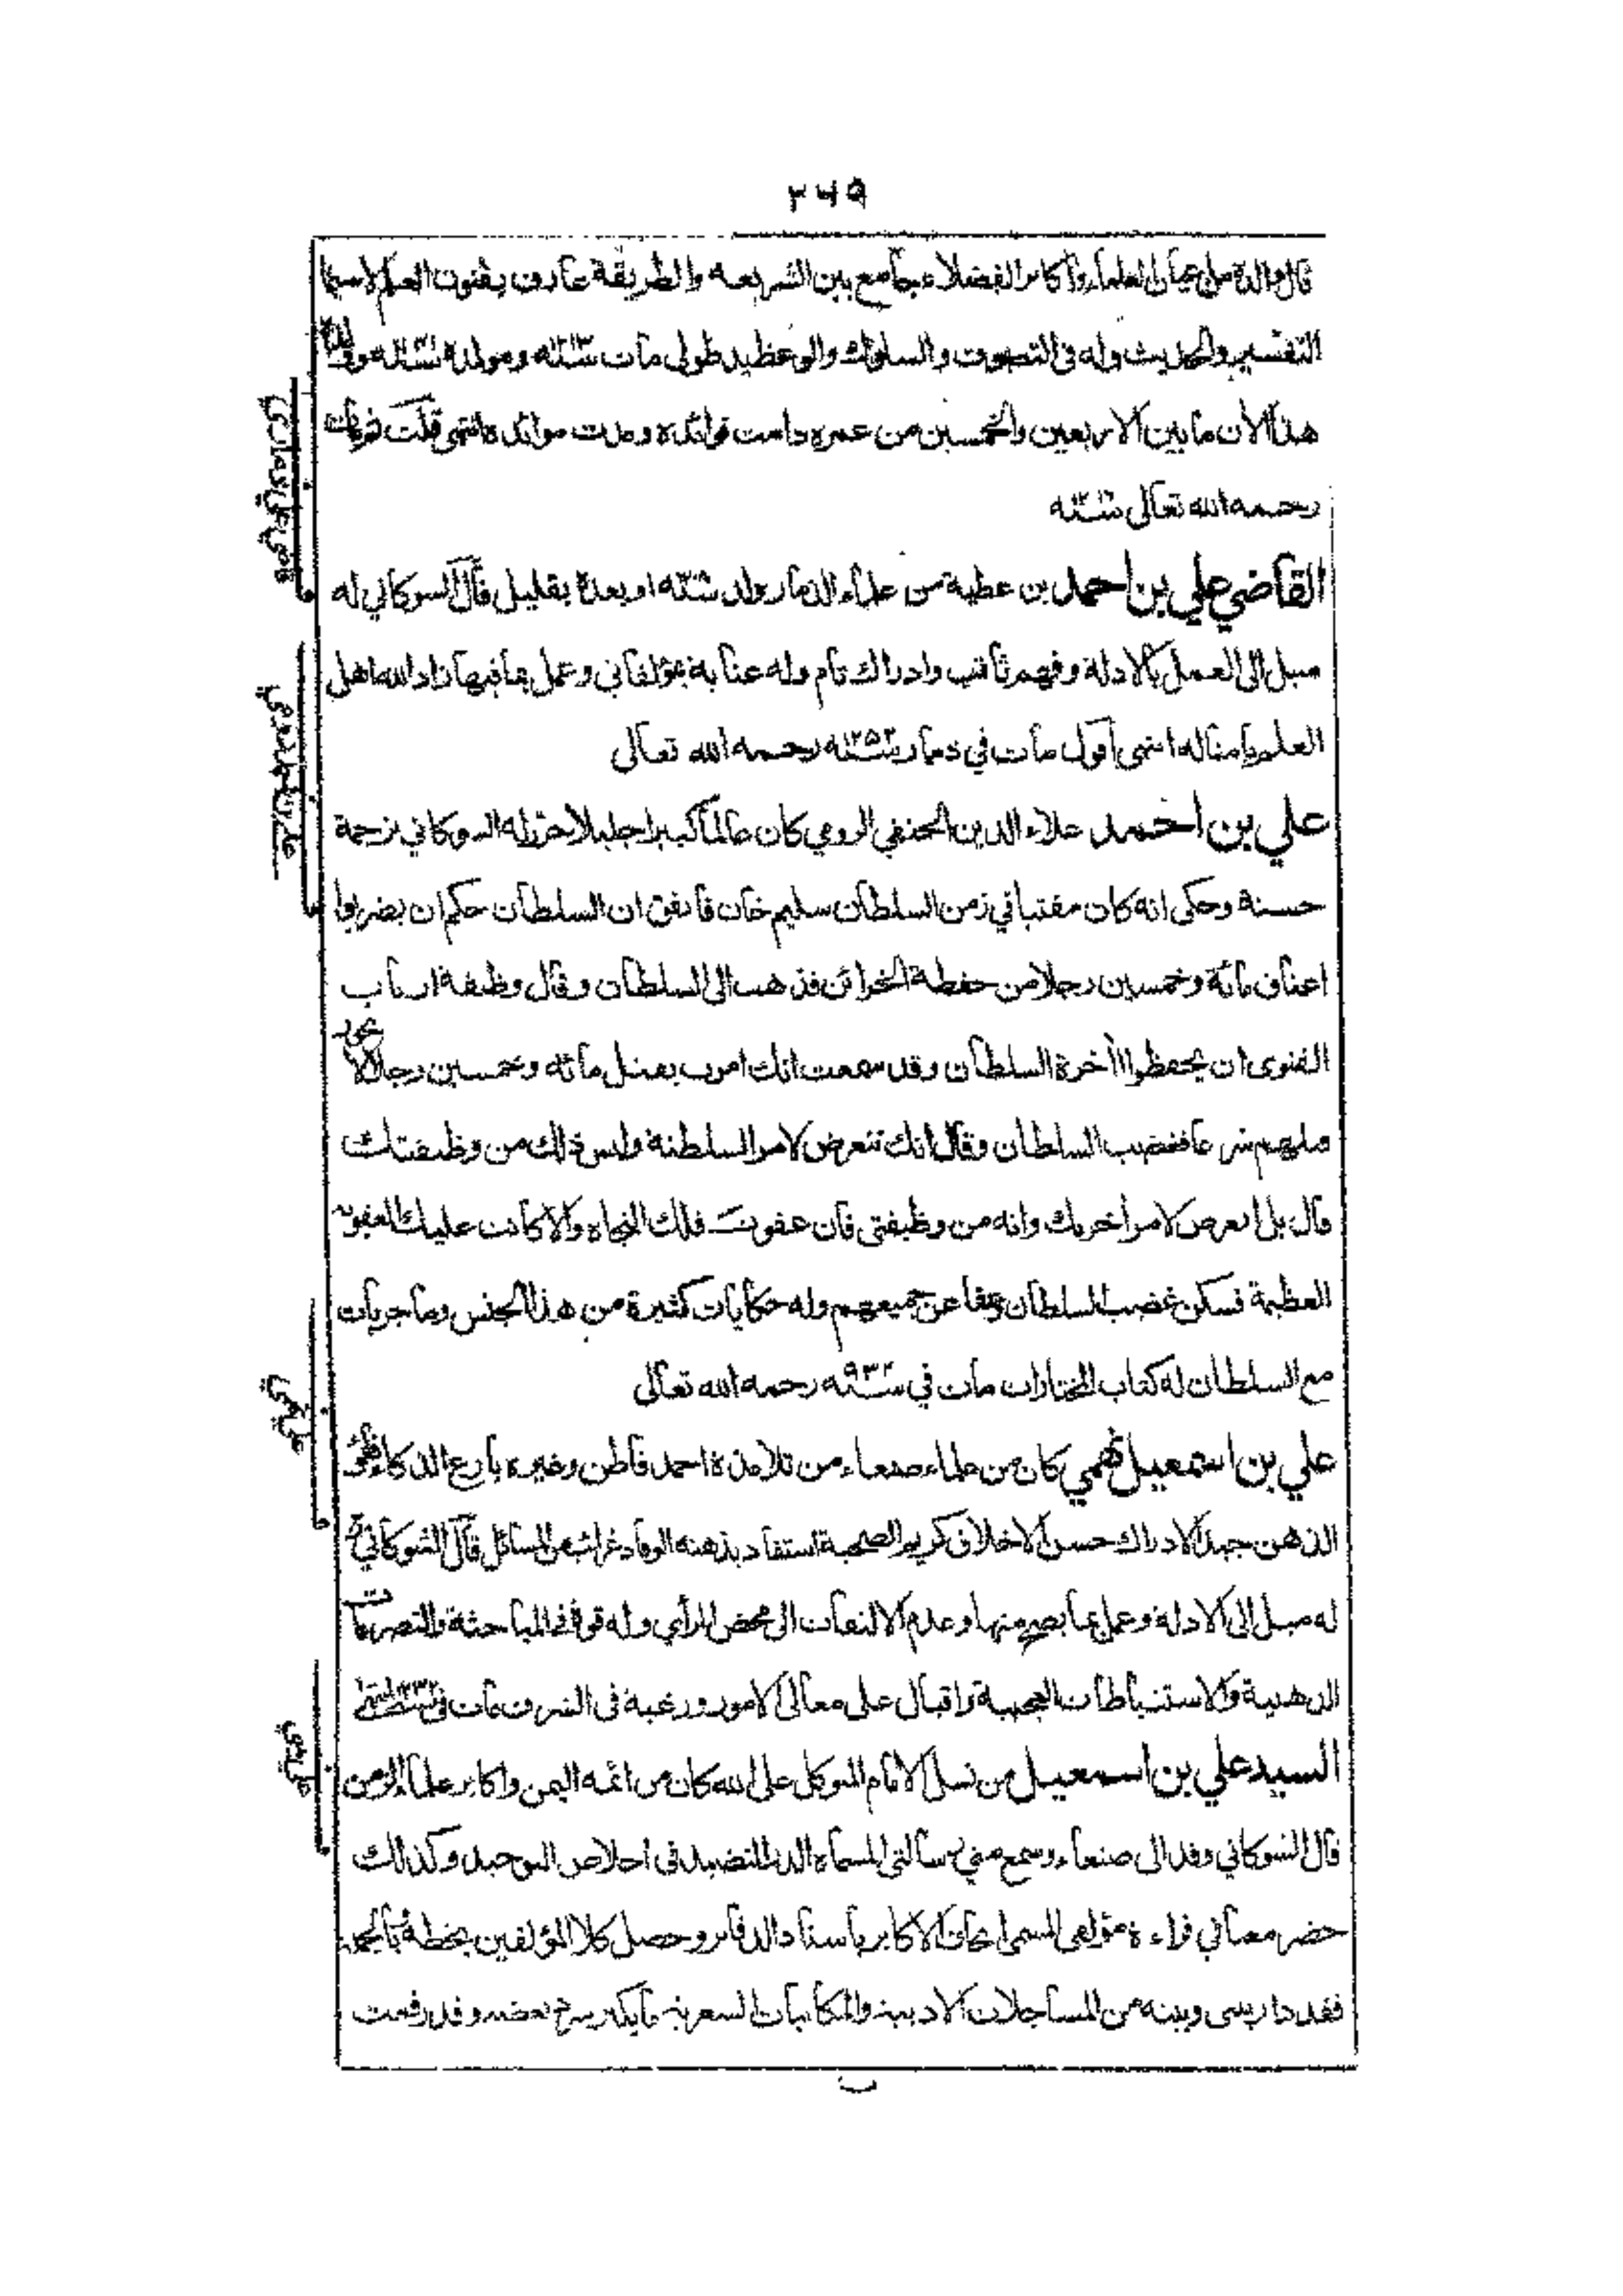 ٢٦٩
قال والده من اعيان العلماء واكابر الفضلاء جامع بين الشريعه والطريقة عارف بفنون العلم لاسيما
التفسير والحديث وله في التصوف والسلوك والوعظ يد طولى مات سنه ومولده سنه
هذا الآن مابين الاربعين والخمسين من عمره دامت فوائده ومدت موائده انتهى قلت
رحمه الله تعالى سنه
القاضي علي بن احمد بن عطية من علماء الذمار ولد سنه او بعدها بقليل قال الشوكاني له
ميل الى العمل بالادلة وفهم ثاقب وادراك تام وله عناية بمؤلفاتي وعمل بما فيها زاد الله اهل
العلم بامثاله انتهى اقول مات في ذمار سنه ١٢٥٣ رحمه الله تعالى
علي بن احمد علاء الدين الحنفي الرومي كان عالما كبيرا جليلا حرر له الشوكاني ترجمة
حسنة وحكى انه كان مفتيا في زمن السلطان سليم خان فاتفق ان السلطان حكم ان يضربوا
اعناق مائة وخمسين رجلا من حفظة الخزائن فذهب الى السلطان وقال وظيفة ارباب
الفتوى ان يحفظوا آخرة السلطان وقد سمعت انك امرت بقتل مائه وخمسين رجالا لا يجوز
قتلهم شرعا فغضب السلطان وقال انك تتعرض لامر السلطنة وليس ذلك من وظيفتك
قال بل اتعرض لامر اخرتك وانه من وظيفتي فان عفوت فلك النجاة والا كانت عليك العقوبه
العظيمة فسكن غضب السلطان وعفا عن جميعهم وله حكايات كثيرة من هذا الجنس وماجريات
مع السلطان له كتاب المختارات مات في سنه ٩٣٢ رحمه الله تعالى
علي بن اسمعيل نهمي كان من علماء صنعاء من تلامذة احمد قاطن وغيره بارع الذكاء قوي
الذهن جيد الادراك حسن الاخلاق كريم الصحبة استفاد بذهنه الوقاد غرائب من المسائل قال الشوكاني
له ميل الى الادلة وعمل بما يصح منها وعدم الالتفات الى محض الرأي وله قوة في المباحثة والتصرفات
الذهنية والاستنباطات العجيبة واقبال على معالي الامور ورغبة في الشرف مات في سنه
السيد علي بن اسمعيل من نسل الامام المتوكل على الله كان من ائمه اليمن واكابر علماء الزمن
قال الشوكاني وفد الى صنعاء وسمع مني رسالتي المسماة الدر النضيد في اخلاص التوحيد وكذلك
حضر معنا في قراءة مؤلفي المسمى اتحاف الاكابر باسناد الدفاتر وحصل كلا المؤلفين بخطه وبالجملة
فقد دار بيني وبينه من المساجلات الادبية والمكاتبات الشعرية ما يكثر شرح بعضه وقد رقمت
قاضي علي ذماري
علي بن احمد رومي
علي نهمي
علي يمني